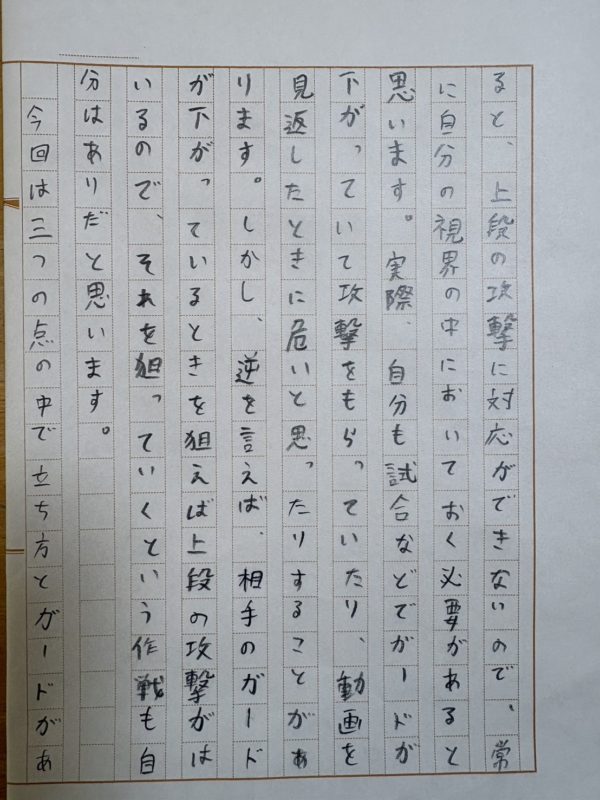 ると、上段の攻撃に対応ができないので、常
に自分の視界の中においておく必要があると
思います。実際、自分も試合などでガードが
下がっていて攻撃をもらっていたり、動画を
見返したときに危いと思ったりすることがあ
ります。しかし、逆を言えば、相手のガード
が下がっているときを狙えば上段の攻撃がは
いるので、それを狙っていくという作戦も自
分はありだと思います。
今回は三つの点の中で立ち方とガードがあ